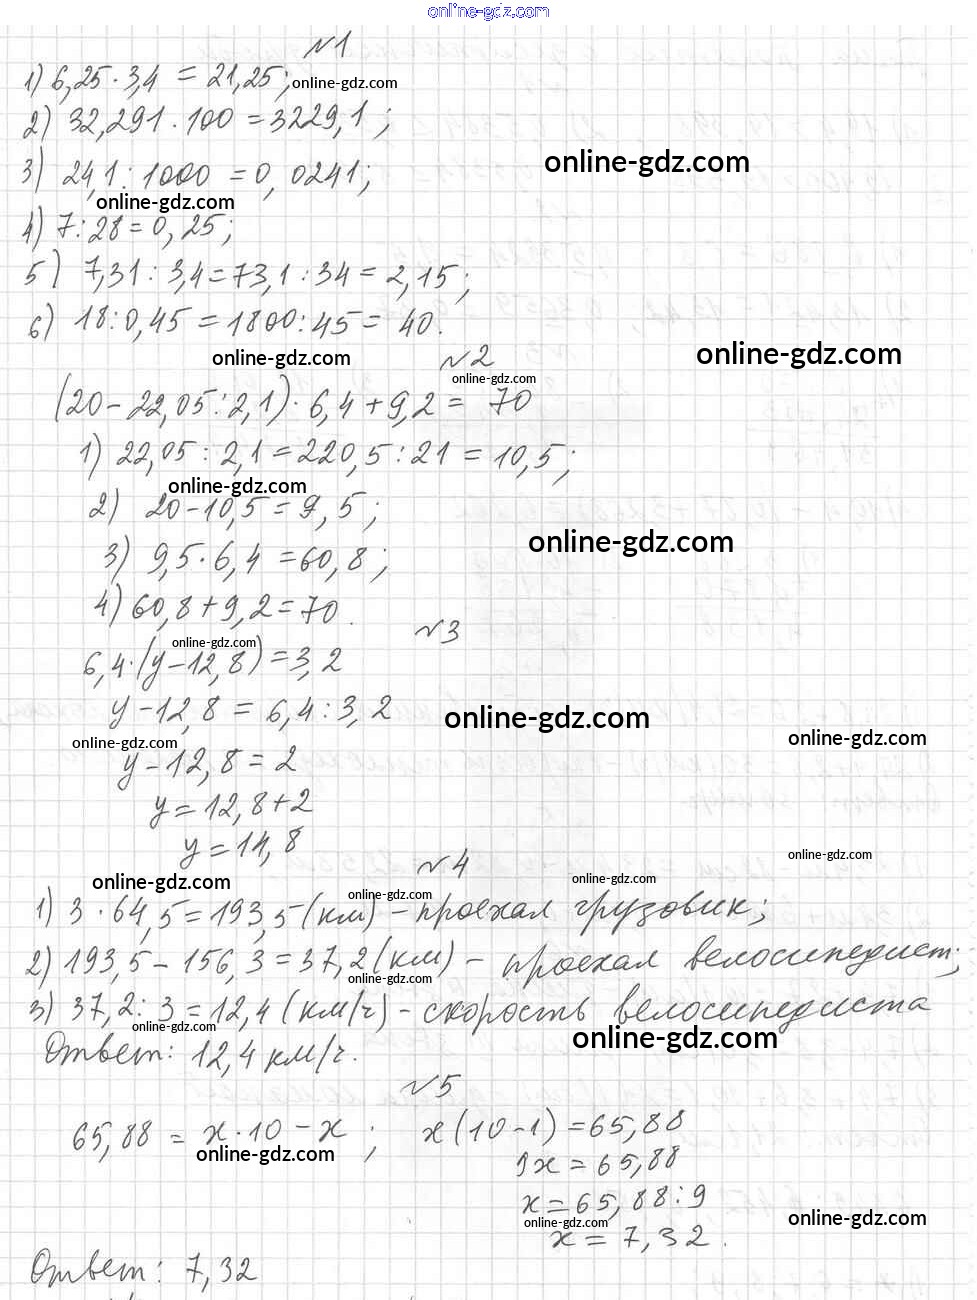 online-gdz.com
№1
1) 6,25 · 3,4 = 21,25; online-gdz.com
2) 32,291 · 100 = 3229,1;
online-gdz.com
3) 24,1 : 1000 = 0,0241;
online-gdz.com
4) 7 : 28 = 0,25;
5) 7,31 : 3,4 = 73,1 : 34 = 2,15;
6) 18 : 0,45 = 1800 : 45 = 40.
online-gdz.com
№2
online-gdz.com
online-gdz.com
(20 - 22,05 : 2,1) · 6,4 + 9,2 = 70
1) 22,05 : 2,1 = 220,5 : 21 = 10,5;
online-gdz.com
2) 20 - 10,5 = 9,5;
online-gdz.com
3) 9,5 · 6,4 = 60,8;
4) 60,8 + 9,2 = 70.
№3
online-gdz.com
6,4 · (y - 12,8) = 3,2
y - 12,8 = 6,4 : 3,2
online-gdz.com
online-gdz.com
online-gdz.com
y - 12,8 = 2
y = 12,8 + 2
y = 14,8
№4
online-gdz.com
online-gdz.com
online-gdz.com
online-gdz.com
1) 3 · 64,5 = 193,5 (км) - проехал грузовик;
2) 193,5 - 156,3 = 37,2 (км) - проехал велосипедист;
online-gdz.com
3) 37,2 : 3 = 12,4 (км/ч) - скорость велосипедиста
online-gdz.com
online-gdz.com
Ответ: 12,4 км/ч.
№5
65,88 = x · 10 - x; x (10 - 1) = 65,88
online-gdz.com
9x = 65,88
x = 65,88 : 9
online-gdz.com
online-gdz.com
x = 7,32.
Ответ: 7,32